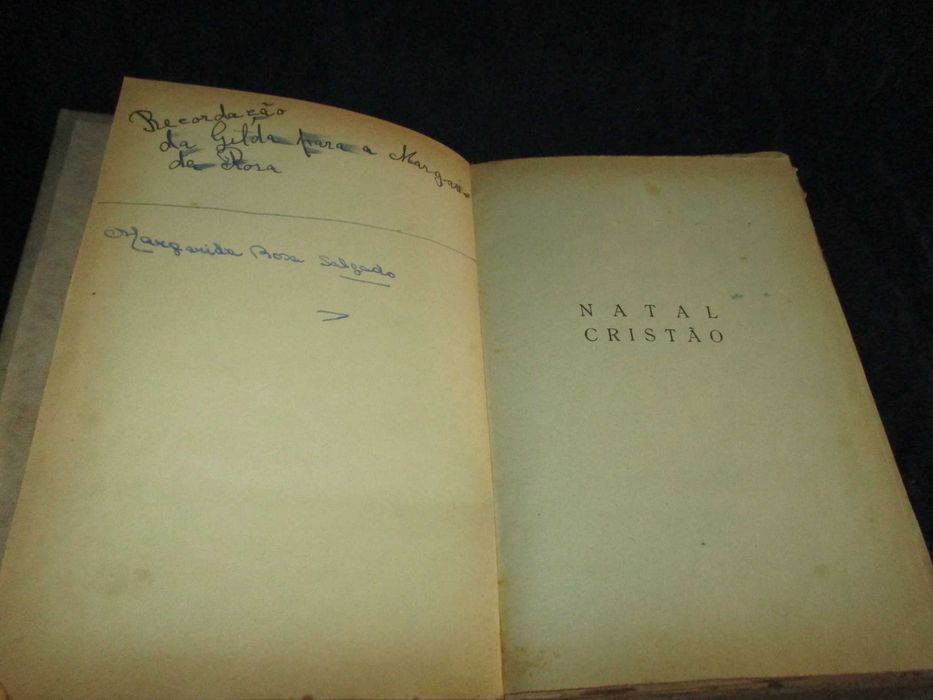 Recordação
da Gilda para a Marga-
da Rosa
Margarida Rosa Salgado
NATAL
CRISTÃO